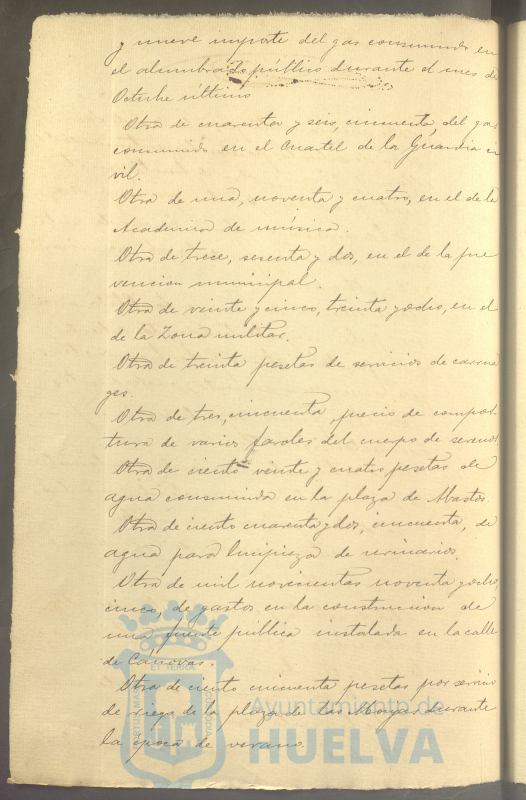 y nueve importe del gas consumido en
el alumbrado público durante el mes de
Octubre último
Otra de cuarenta y seis, cincuenta, del gas
consumido en el Cuartel de la Guardia ci
vil.
Otra de una, noventa y cuatro, en el de la
Academia de música.
Otra de trece, sesenta y dos, en el de la pre
vencion municipal.
Otra de veinte y cinco, treinta y ocho, en el
de la Zona militar.
Otra de treinta pesetas de servicios de carrua
ges.
Otra de tres, cincuenta, precio de compos
tura de varios faroles del cuerpo de serenos
Otra de ciento veinte y cuatro pesetas de
agua consumida en la plaza de Abastos.
Otra de ciento cuarenta y dos, cincuenta, de
agua para limpieza de urinarios.
Otra de mil novecientas noventa y ocho,
cinco, de gastos en la construccion de
una fuente pública instalada en la calle
de Cánovas.
Otra de ciento cincuenta pesetas por servicio
de riego de la plaza de las Monjas durante
la época de verano.
Ayuntamiento de
HUELVA